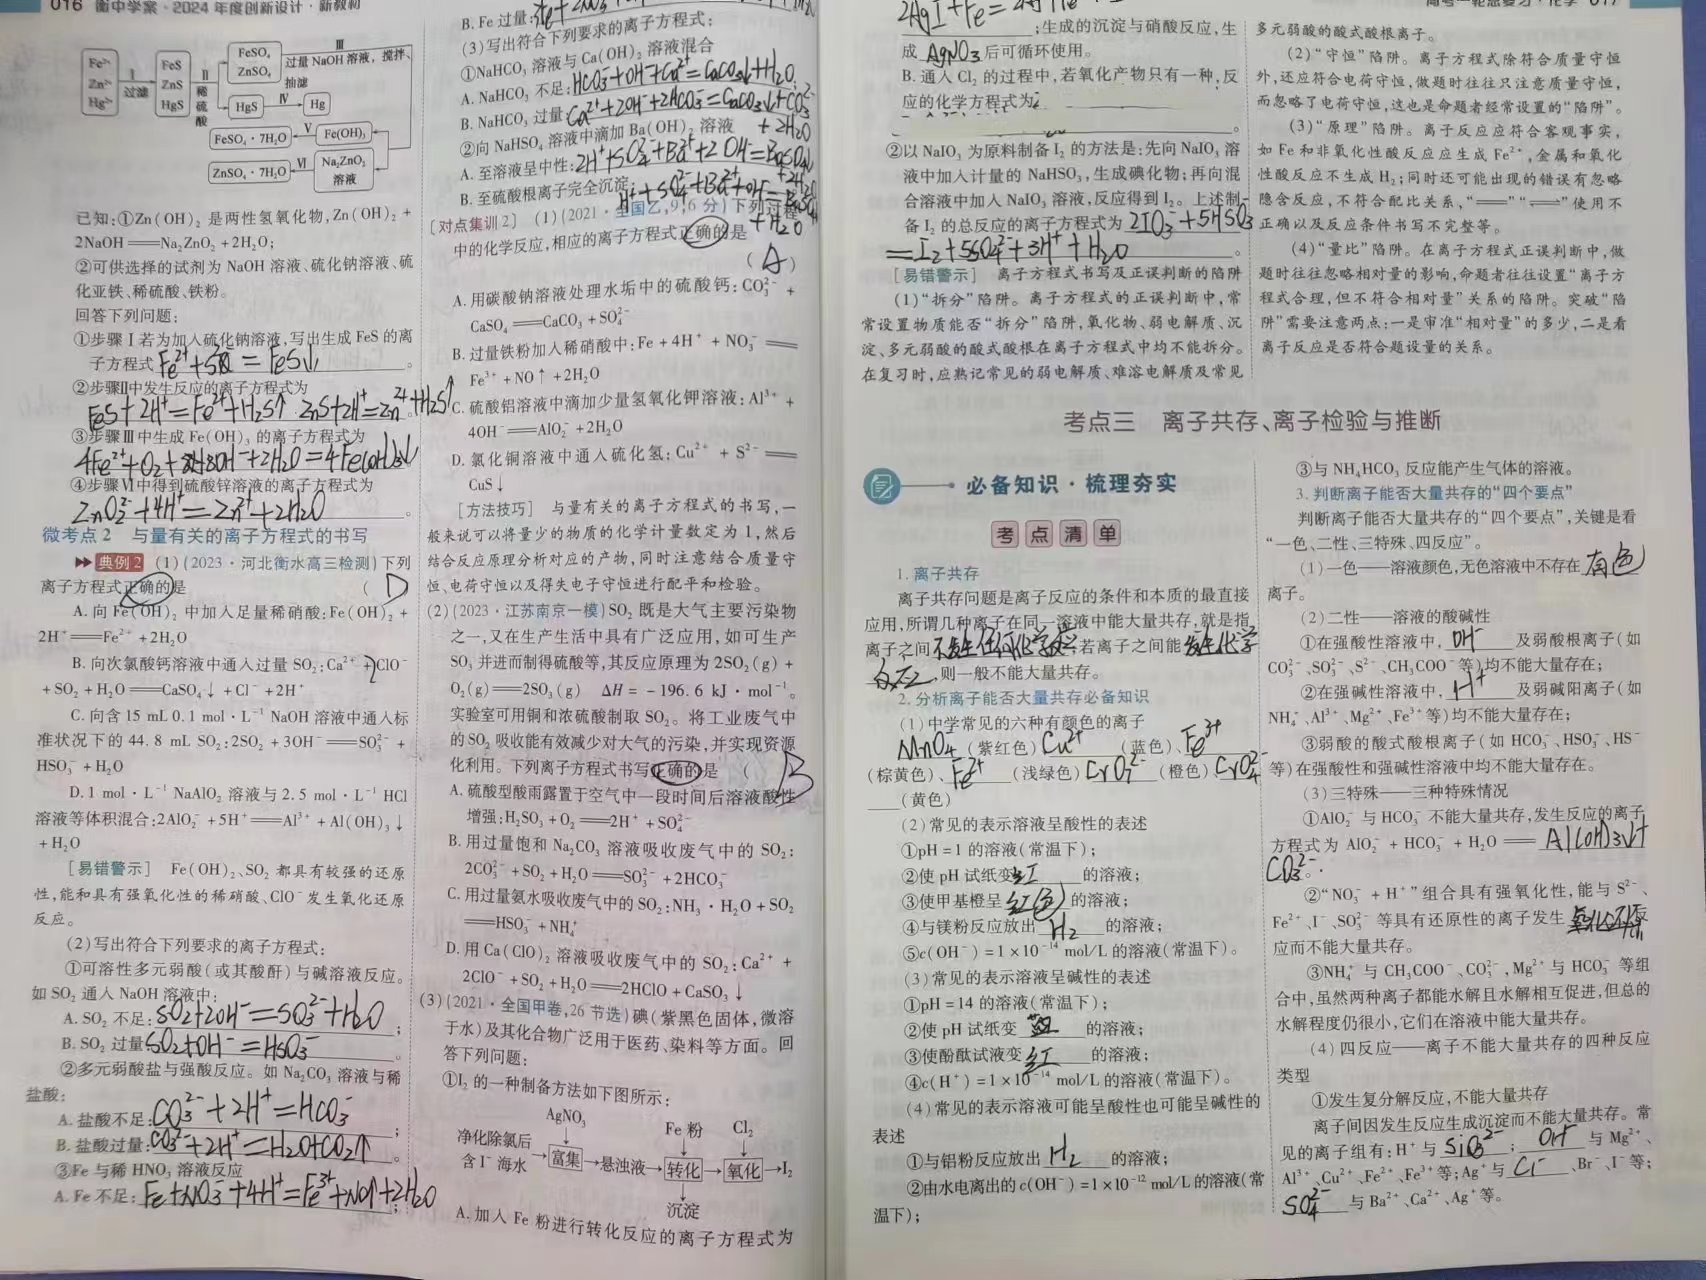 016 衡中学案·2024年度创新设计·新教材
Fe²⁺ Zn²⁺ Hg²⁺
Ⅰ 过滤
FeS ZnS HgS
Ⅱ 稀硫酸
FeSO₄ ZnSO₄
Ⅲ
过量NaOH溶液,搅拌、抽滤
HgS Ⅳ Hg
FeSO₄·7H₂O Ⅴ Fe(OH)₃
ZnSO₄·7H₂O Ⅵ Na₂ZnO₂溶液
已知:①Zn(OH)₂是两性氢氧化物,Zn(OH)₂+
2NaOH══Na₂ZnO₂+2H₂O;
②可供选择的试剂为NaOH溶液、硫化钠溶液、硫
化亚铁、稀硫酸、铁粉。
回答下列问题:
①步骤Ⅰ若为加入硫化钠溶液,写出生成FeS的离
子方程式Fe²⁺+S²⁻=FeS↓。
②步骤Ⅱ中发生反应的离子方程式为
FeS+2H⁺=Fe²⁺+H₂S↑ ZnS+2H⁺=Zn²⁺+H₂S↑
③步骤Ⅲ中生成Fe(OH)₃的离子方程式为
4Fe²⁺+O₂+8OH⁻+2H₂O=4Fe(OH)₃↓
④步骤Ⅵ中得到硫酸锌溶液的离子方程式为
ZnO₂²⁻+4H⁺=Zn²⁺+2H₂O。
微考点2 与量有关的离子方程式的书写
典例2 (1)(2023·河北衡水高三检测)下列
离子方程式正确的是 (D
A.向Fe(OH)₂中加入足量稀硝酸:Fe(OH)₂+
2H⁺══Fe²⁺+2H₂O
B.向次氯酸钙溶液中通入过量SO₂:Ca²⁺+2ClO⁻
+SO₂+H₂O══CaSO₄↓+Cl⁻+2H⁺
C.向含15 mL 0.1 mol·L⁻¹ NaOH溶液中通入标
准状况下的44.8 mL SO₂:2SO₂+3OH⁻══SO₃²⁻+
HSO₃⁻+H₂O
D.1 mol·L⁻¹ NaAlO₂溶液与2.5 mol·L⁻¹ HCl
溶液等体积混合:2AlO₂⁻+5H⁺══Al³⁺+Al(OH)₃↓
+H₂O
[易错警示] Fe(OH)₂、SO₂都具有较强的还原
性,能和具有强氧化性的稀硝酸、ClO⁻发生氧化还原
反应。
(2)写出符合下列要求的离子方程式:
①可溶性多元弱酸(或其酸酐)与碱溶液反应。
如SO₂通入NaOH溶液中:
A.SO₂不足:SO₂+2OH⁻=SO₃²⁻+H₂O;
B.SO₂过量SO₂+OH⁻=HSO₃⁻。
②多元弱酸盐与强酸反应。如Na₂CO₃溶液与稀
盐酸:
A.盐酸不足:CO₃²⁻+2H⁺=HCO₃⁻;
B.盐酸过量:CO₃²⁻+2H⁺=H₂O+CO₂↑。
③Fe与稀HNO₃溶液反应
A.Fe不足:Fe+NO₃⁻+4H⁺=Fe³⁺+NO↑+2H₂O;
B.Fe过量:
(3)写出符合下列要求的离子方程式:
①NaHCO₃溶液与Ca(OH)₂溶液混合
A.NaHCO₃不足:HCO₃⁻+OH⁻+Ca²⁺=CaCO₃↓+H₂O;
B.NaHCO₃过量:Ca²⁺+2OH⁻+2HCO₃⁻=CaCO₃↓+CO₃²⁻
+2H₂O
②向NaHSO₄溶液中滴加Ba(OH)₂溶液
A.至溶液呈中性:2H⁺+SO₄²⁻+Ba²⁺+2OH⁻=BaSO₄↓
+2H₂O
B.至硫酸根离子完全沉淀:H⁺+SO₄²⁻+Ba²⁺+OH⁻=BaSO₄↓
+H₂O
[对点集训2] (1)(2021·全国乙,9,6分)下列过程
中的化学反应,相应的离子方程式正确的是
(A)
A.用碳酸钠溶液处理水垢中的硫酸钙:CO₃²⁻+
CaSO₄══CaCO₃+SO₄²⁻
B.过量铁粉加入稀硝酸中:Fe+4H⁺+NO₃⁻══
Fe³⁺+NO↑+2H₂O
C.硫酸铝溶液中滴加少量氢氧化钾溶液:Al³⁺+
4OH⁻══AlO₂⁻+2H₂O
D.氯化铜溶液中通入硫化氢:Cu²⁺+S²⁻══
CuS↓
[方法技巧] 与量有关的离子方程式的书写,一
般来说可以将量少的物质的化学计量数定为1,然后
结合反应原理分析对应的产物,同时注意结合质量守
恒、电荷守恒以及得失电子守恒进行配平和检验。
(2)(2023·江苏南京一模)SO₂既是大气主要污染物
之一,又在生产生活中具有广泛应用,如可生产
SO₃并进而制得硫酸等,其反应原理为2SO₂(g)+
O₂(g)══2SO₃(g) ΔH=-196.6 kJ·mol⁻¹。
实验室可用铜和浓硫酸制取SO₂。将工业废气中
的SO₂吸收能有效减少对大气的污染,并实现资源
化利用。下列离子方程式书写正确的是 (B
A.硫酸型酸雨露置于空气中一段时间后溶液酸性
增强:H₂SO₃+O₂══2H⁺+SO₄²⁻
B.用过量饱和Na₂CO₃溶液吸收废气中的SO₂:
2CO₃²⁻+SO₂+H₂O══SO₃²⁻+2HCO₃⁻
C.用过量氨水吸收废气中的SO₂:NH₃·H₂O+SO₂
══HSO₃⁻+NH₄⁺
D.用Ca(ClO)₂溶液吸收废气中的SO₂:Ca²⁺+
2ClO⁻+SO₂+H₂O══2HClO+CaSO₃↓
(3)(2021·全国甲卷,26节选)碘(紫黑色固体,微溶
于水)及其化合物广泛用于医药、染料等方面。回
答下列问题:
①I₂的一种制备方法如下图所示:
AgNO₃ Fe粉 Cl₂
净化除氯后含I⁻海水→富集→悬浊液→转化→氧化→I₂
沉淀
A.加入Fe粉进行转化反应的离子方程式为
;生成的沉淀与硝酸反应,生
成AgNO₃后可循环使用。
B.通入Cl₂的过程中,若氧化产物只有一种,反
应的化学方程式为
。
②以NaIO₃为原料制备I₂的方法是:先向NaIO₃溶
液中加入计量的NaHSO₃,生成碘化物;再向混
合溶液中加入NaIO₃溶液,反应得到I₂。上述制
备I₂的总反应的离子方程式为2IO₃⁻+5HSO₃⁻
=I₂+5SO₄²⁻+3H⁺+H₂O。
[易错警示] 离子方程式书写及正误判断的陷阱
(1)“拆分”陷阱。离子方程式的正误判断中,常
常设置物质能否“拆分”陷阱,氧化物、弱电解质、沉
淀、多元弱酸的酸式酸根在离子方程式中均不能拆分。
在复习时,应熟记常见的弱电解质、难溶电解质及常见
多元弱酸的酸式酸根离子。
(2)“守恒”陷阱。离子方程式除符合质量守恒
外,还应符合电荷守恒,做题时往往只注意质量守恒,
而忽略了电荷守恒,这也是命题者经常设置的“陷阱”。
(3)“原理”陷阱。离子反应应符合客观事实,
如Fe和非氧化性酸反应应生成Fe²⁺,金属和氧化
性酸反应不生成H₂;同时还可能出现的错误有忽略
隐含反应,不符合配比关系,“══”“⇌”使用不
正确以及反应条件书写不完整等。
(4)“量比”陷阱。在离子方程式正误判断中,做
题时往往忽略相对量的影响,命题者往往设置“离子方
程式合理,但不符合相对量”关系的陷阱。突破“陷
阱”需要注意两点:一是审准“相对量”的多少,二是看
离子反应是否符合题设量的关系。
考点三 离子共存、离子检验与推断
必备知识·梳理夯实
考点清单
1.离子共存
离子共存问题是离子反应的条件和本质的最直接
应用,所谓几种离子在同一溶液中能大量共存,就是指
离子之间不发生任何化学反应;若离子之间能发生化学
反应,则一般不能大量共存。
2.分析离子能否大量共存必备知识
(1)中学常见的六种有颜色的离子
MnO₄⁻(紫红色)Cu²⁺(蓝色)、Fe³⁺
(棕黄色)、Fe²⁺(浅绿色)CrO₇²⁻(橙色)CrO₄²⁻
(黄色)
(2)常见的表示溶液呈酸性的表述
①pH=1的溶液(常温下);
②使pH试纸变红的溶液;
③使甲基橙呈红色的溶液;
④与镁粉反应放出H₂的溶液;
⑤c(OH⁻)=1×10⁻¹⁴ mol/L的溶液(常温下)。
(3)常见的表示溶液呈碱性的表述
①pH=14的溶液(常温下);
②使pH试纸变蓝的溶液;
③使酚酞试液变红的溶液;
④c(H⁺)=1×10⁻¹⁴ mol/L的溶液(常温下)。
(4)常见的表示溶液可能呈酸性也可能呈碱性的
表述
①与铝粉反应放出H₂的溶液;
②由水电离出的c(OH⁻)=1×10⁻¹² mol/L的溶液(常
温下);
③与NH₄HCO₃反应能产生气体的溶液。
3.判断离子能否大量共存的“四个要点”
判断离子能否大量共存的“四个要点”,关键是看
“一色、二性、三特殊、四反应”。
(1)一色——溶液颜色,无色溶液中不存在有色
离子。
(2)二性——溶液的酸碱性
①在强酸性溶液中,OH⁻及弱酸根离子(如
CO₃²⁻、SO₃²⁻、S²⁻、CH₃COO⁻等)均不能大量存在;
②在强碱性溶液中,H⁺及弱碱阳离子(如
NH₄⁺、Al³⁺、Mg²⁺、Fe³⁺等)均不能大量存在;
③弱酸的酸式酸根离子(如HCO₃⁻、HSO₃⁻、HS⁻
等)在强酸性和强碱性溶液中均不能大量存在。
(3)三特殊——三种特殊情况
①AlO₂⁻与HCO₃⁻不能大量共存,发生反应的离子
方程式为AlO₂⁻+HCO₃⁻+H₂O══Al(OH)₃↓+
CO₃²⁻。
②“NO₃⁻+H⁺”组合具有强氧化性,能与S²⁻、
Fe²⁺、I⁻、SO₃²⁻等具有还原性的离子发生氧化还原反
应而不能大量共存。
③NH₄⁺与CH₃COO⁻、CO₃²⁻,Mg²⁺与HCO₃⁻等组
合中,虽然两种离子都能水解且水解相互促进,但总的
水解程度仍很小,它们在溶液中能大量共存。
(4)四反应——离子不能大量共存的四种反应
类型
①发生复分解反应,不能大量共存
离子间因发生反应生成沉淀而不能大量共存。常
见的离子组有:H⁺与SiO₃²⁻;OH⁻与Mg²⁺、
Al³⁺、Cu²⁺、Fe²⁺、Fe³⁺等;Ag⁺与Cl⁻、Br⁻、I⁻等;
SO₄²⁻与Ba²⁺、Ca²⁺、Ag⁺等。